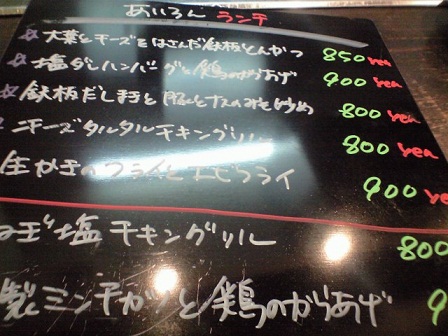 あいろん ランチ
☆大葉とチーズをはさんだ鉄板とんかつ 850yen
☆塩ダレハンバーグと鶏のからあげ 900yen
☆鉄板だしまきと豚とナスのみそ炒め 800yen
チーズタルタルチキングリル 800yen
生かきのフライとエビフライ 900ye
ネギ塩チキングリル 800
製ミンチカツと鶏のからあげ 9